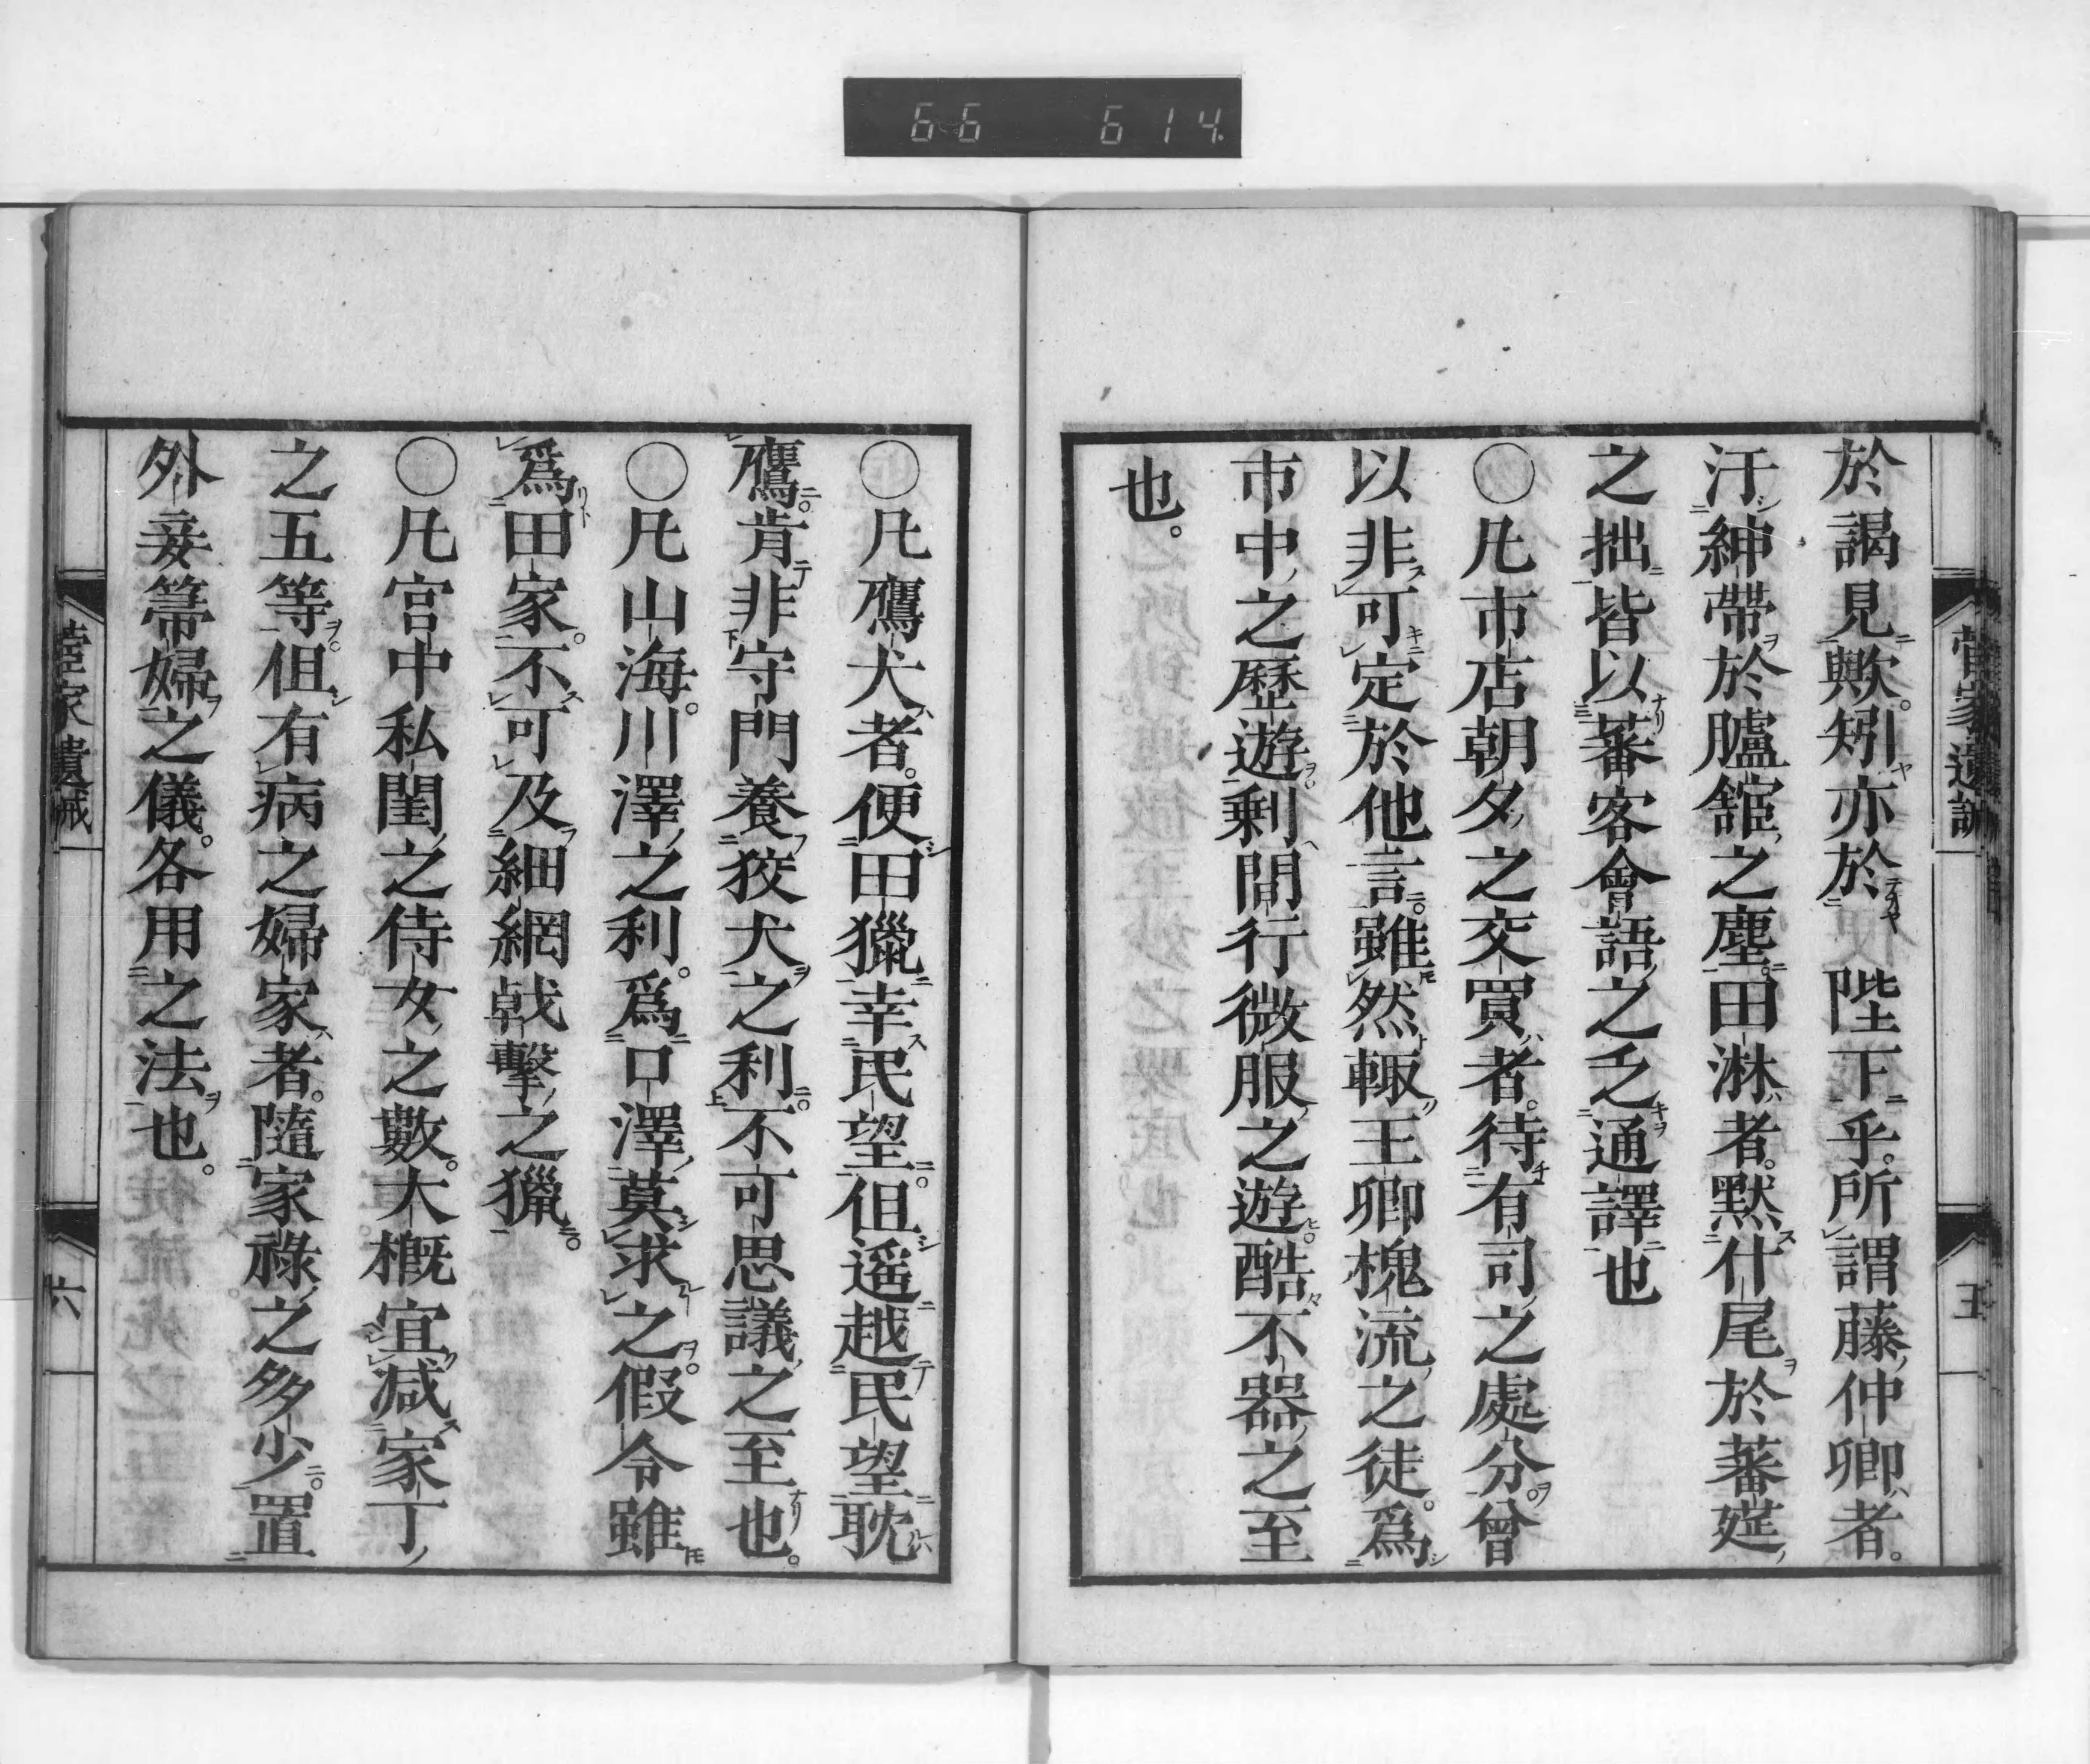 66 614
菅家遺誡
於謁見歟。矧亦於 陛下乎。所謂藤仲卿者。
汙紳帶於臚館之塵。田淋者。默什尾於蕃莚
之拙皆以蕃客會語之乏通譯也
〇凡市店朝夕之交買者。待有司之處分。曾
以非可定於他言。雖然輙王卿槐流之徒。爲
市中之歷遊。剩間行微服之遊。酷不器之至
也。
五
〇凡鷹犬者。便田獵幸民望。但遥越民望耽
鷹。肯非守門養狡犬之利。不可思議之至也。
〇凡山海。川澤之利。爲口澤莫求之。假令雖
爲田家。不可及細網戟擊之獵。
〇凡宮中私閨之侍女之數。大槪宜减家丁
之五等。但有病之婦家者。隨家祿之多少。置
外妾箒婦之儀。各用之法也。
菅家遺誡
六